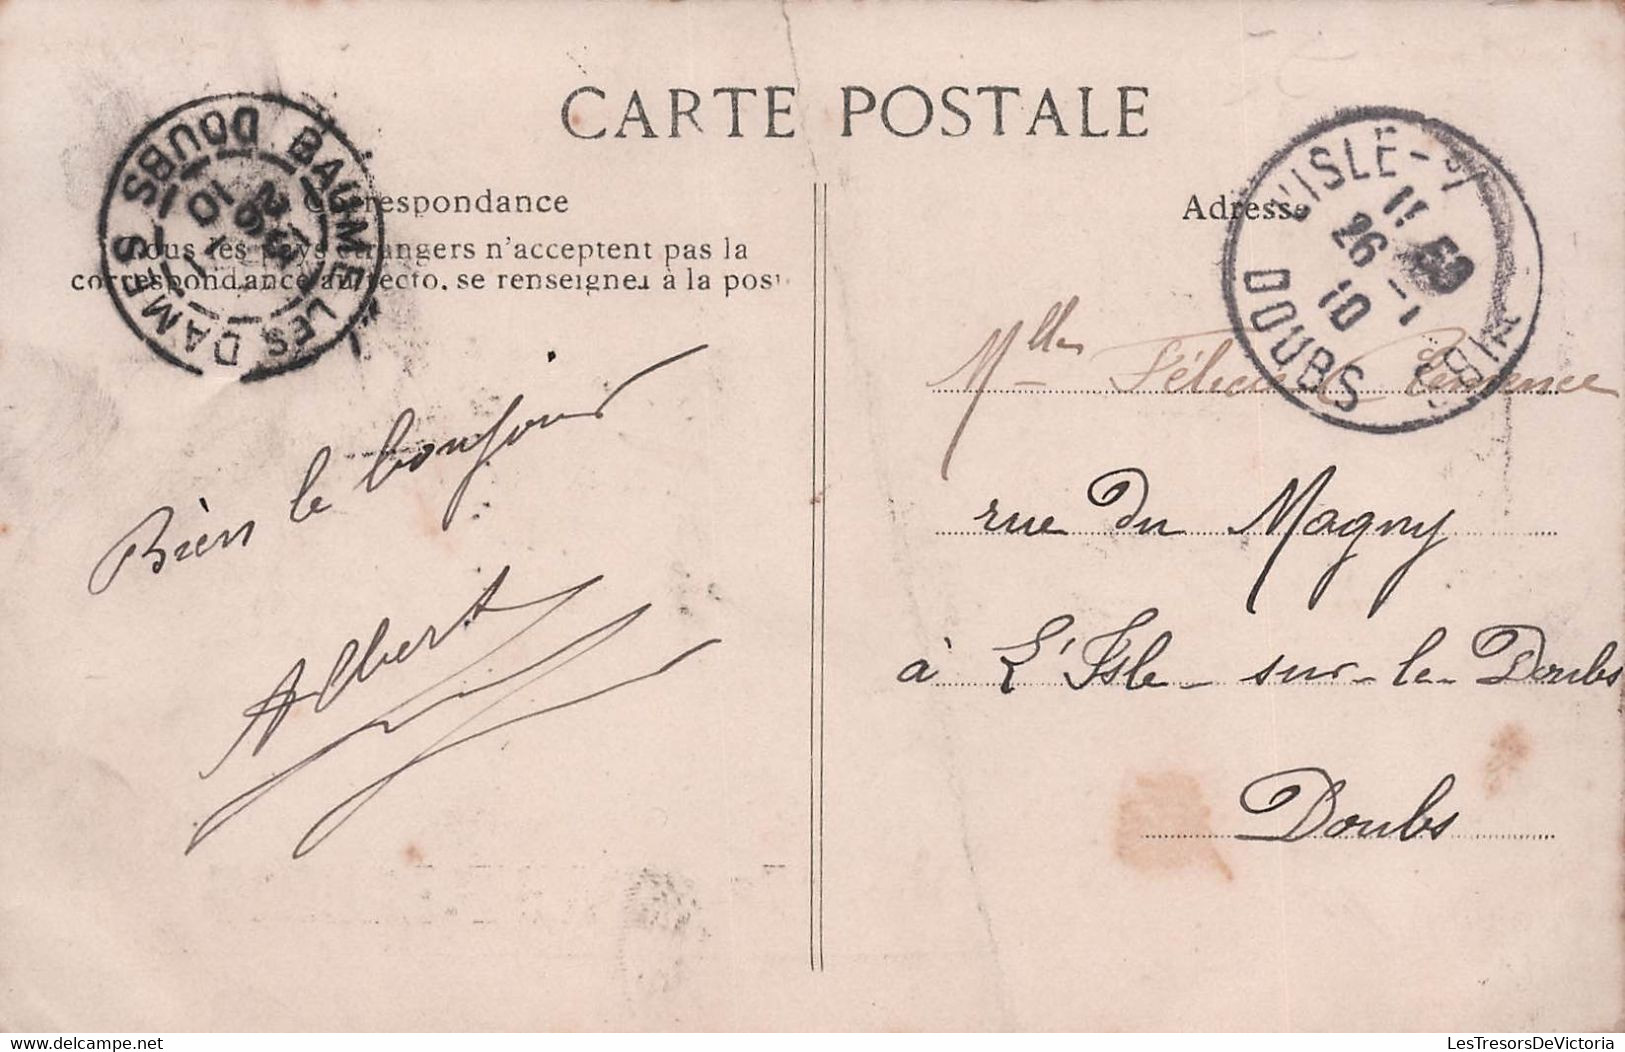 CARTE POSTALE
Correspondance
Tous les pays étrangers n'acceptent pas la
correspondance au recto, se renseigner à la poste
BAUME LES DAMES DOUBS
Bien le bonjour
Albert
Adresse
L'ISLE-S/
DOUBS
11 50
26 -1
10
Mlles
rue du Magny
à L'Isle-sur-le-Doubs
Doubs
www.delcampe.net
LesTresorsDeVictoria